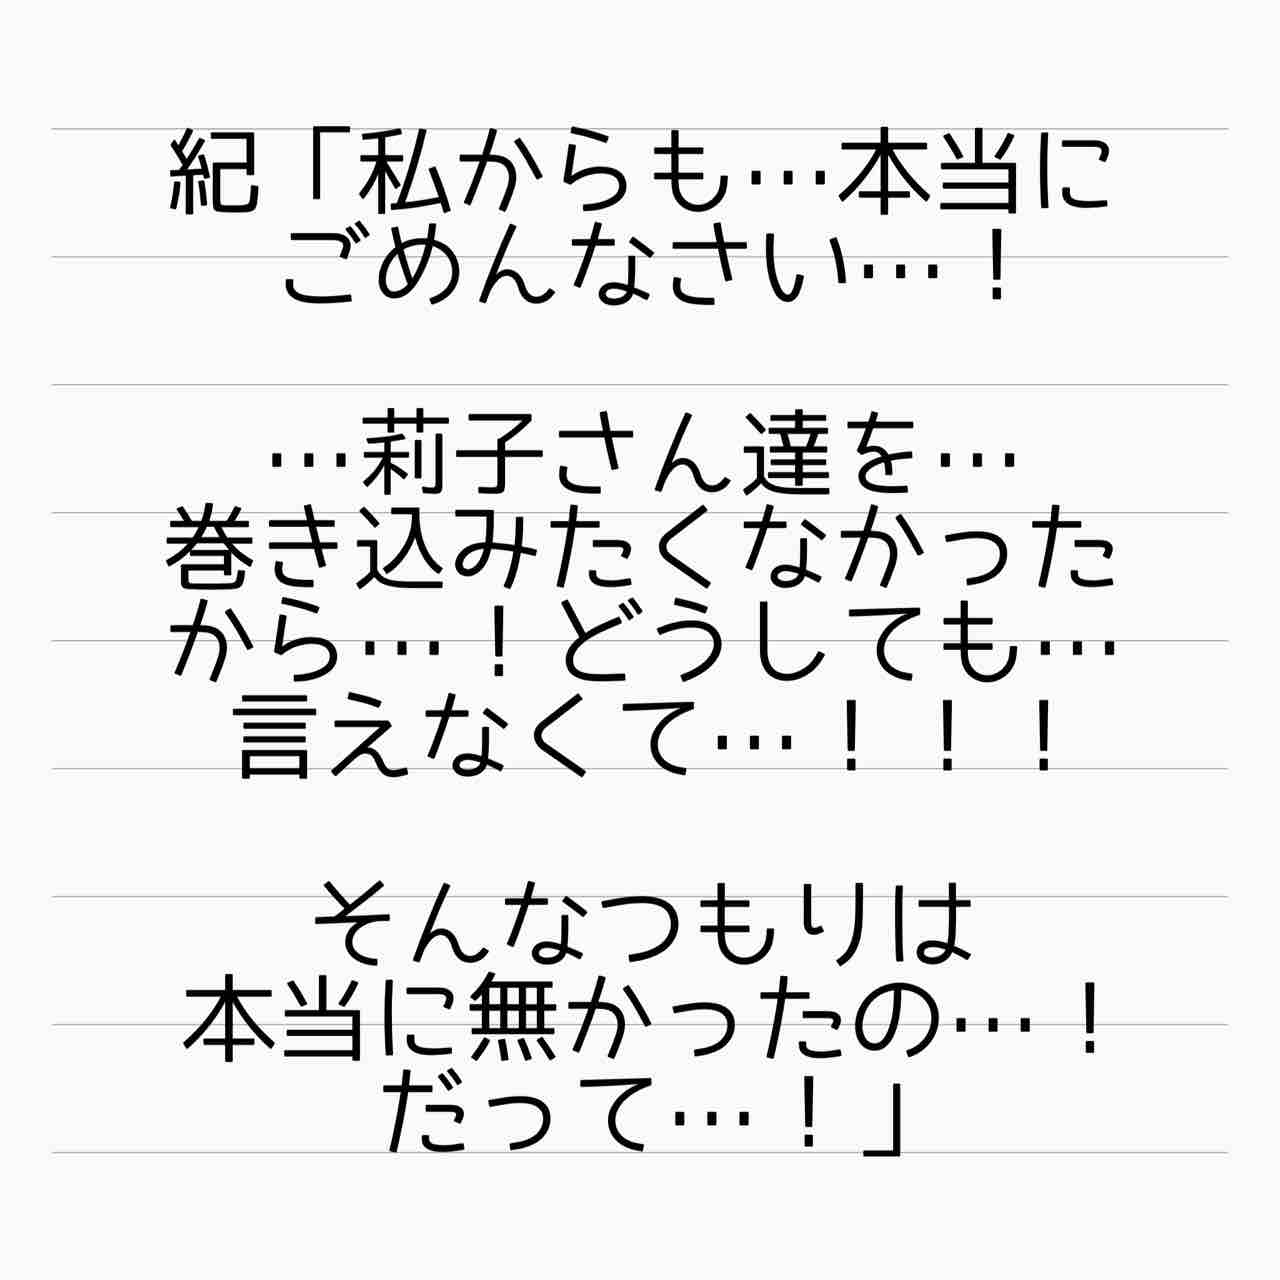 紀「私からも…本当に
ごめんなさい…！
…莉子さん達を…
巻き込みたくなかった
から…！どうしても…
言えなくて…！！！
そんなつもりは
本当に無かったの…！
だって…！」